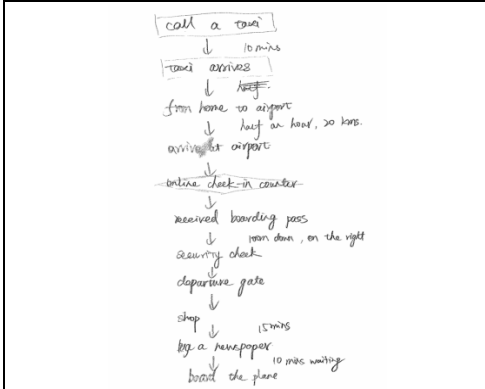 call a taxi
10 mins
taxi arrives
half.
from home to airport
half an hour, 20 kms.
arrive at airport
online check-in counter
received boarding pass
100m down, on the right
security check
daparture gate
shop
15 mins
buy a newspaper
10 mins waiting
board the plane